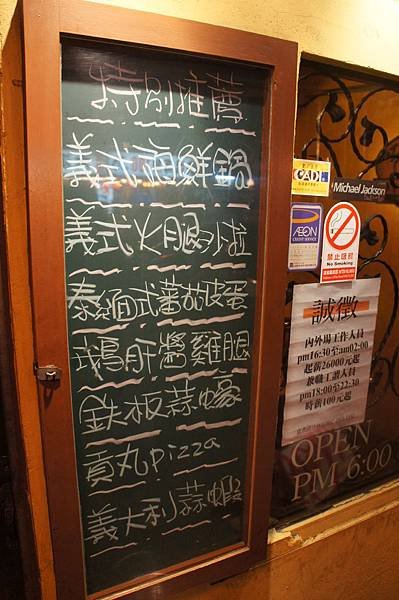 特別推薦
義式海鮮鍋
義式火腿沙啦
泰緬式蕃茄皮蛋
鵝肝醬雞腿
鉄板蒜蠔
貢丸pizza
義大利蒜蝦
CADI
Michael Jackson
AEON
CREDIT SERVICE
禁止吸菸
No Smoking
誠徵
內外場工作人員
pm16:30至am02:00
起薪26000元起
兼職工讀人員
pm18:00至22:30
時薪100元起
OPEN
PM 6:00